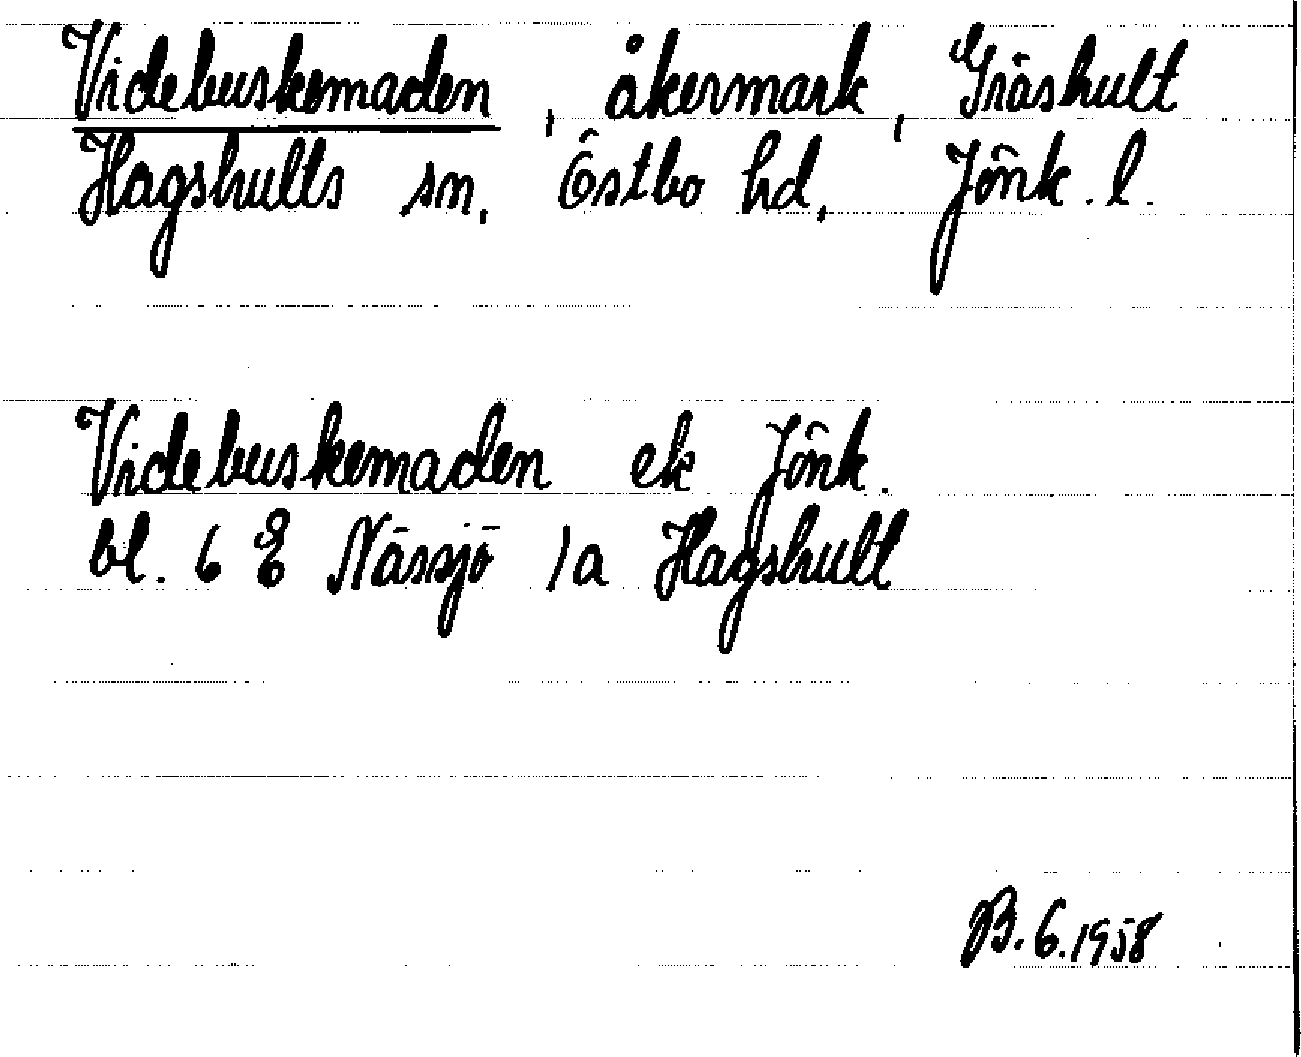 Videbuskemaden, åkermark, Gräshult
Hagshults sn. Östbo hd. Jönk. l.
Videbuskemaden ek Jönk.
bl. 6 E Nässjö 1a Hagshult
B. 6. 1958